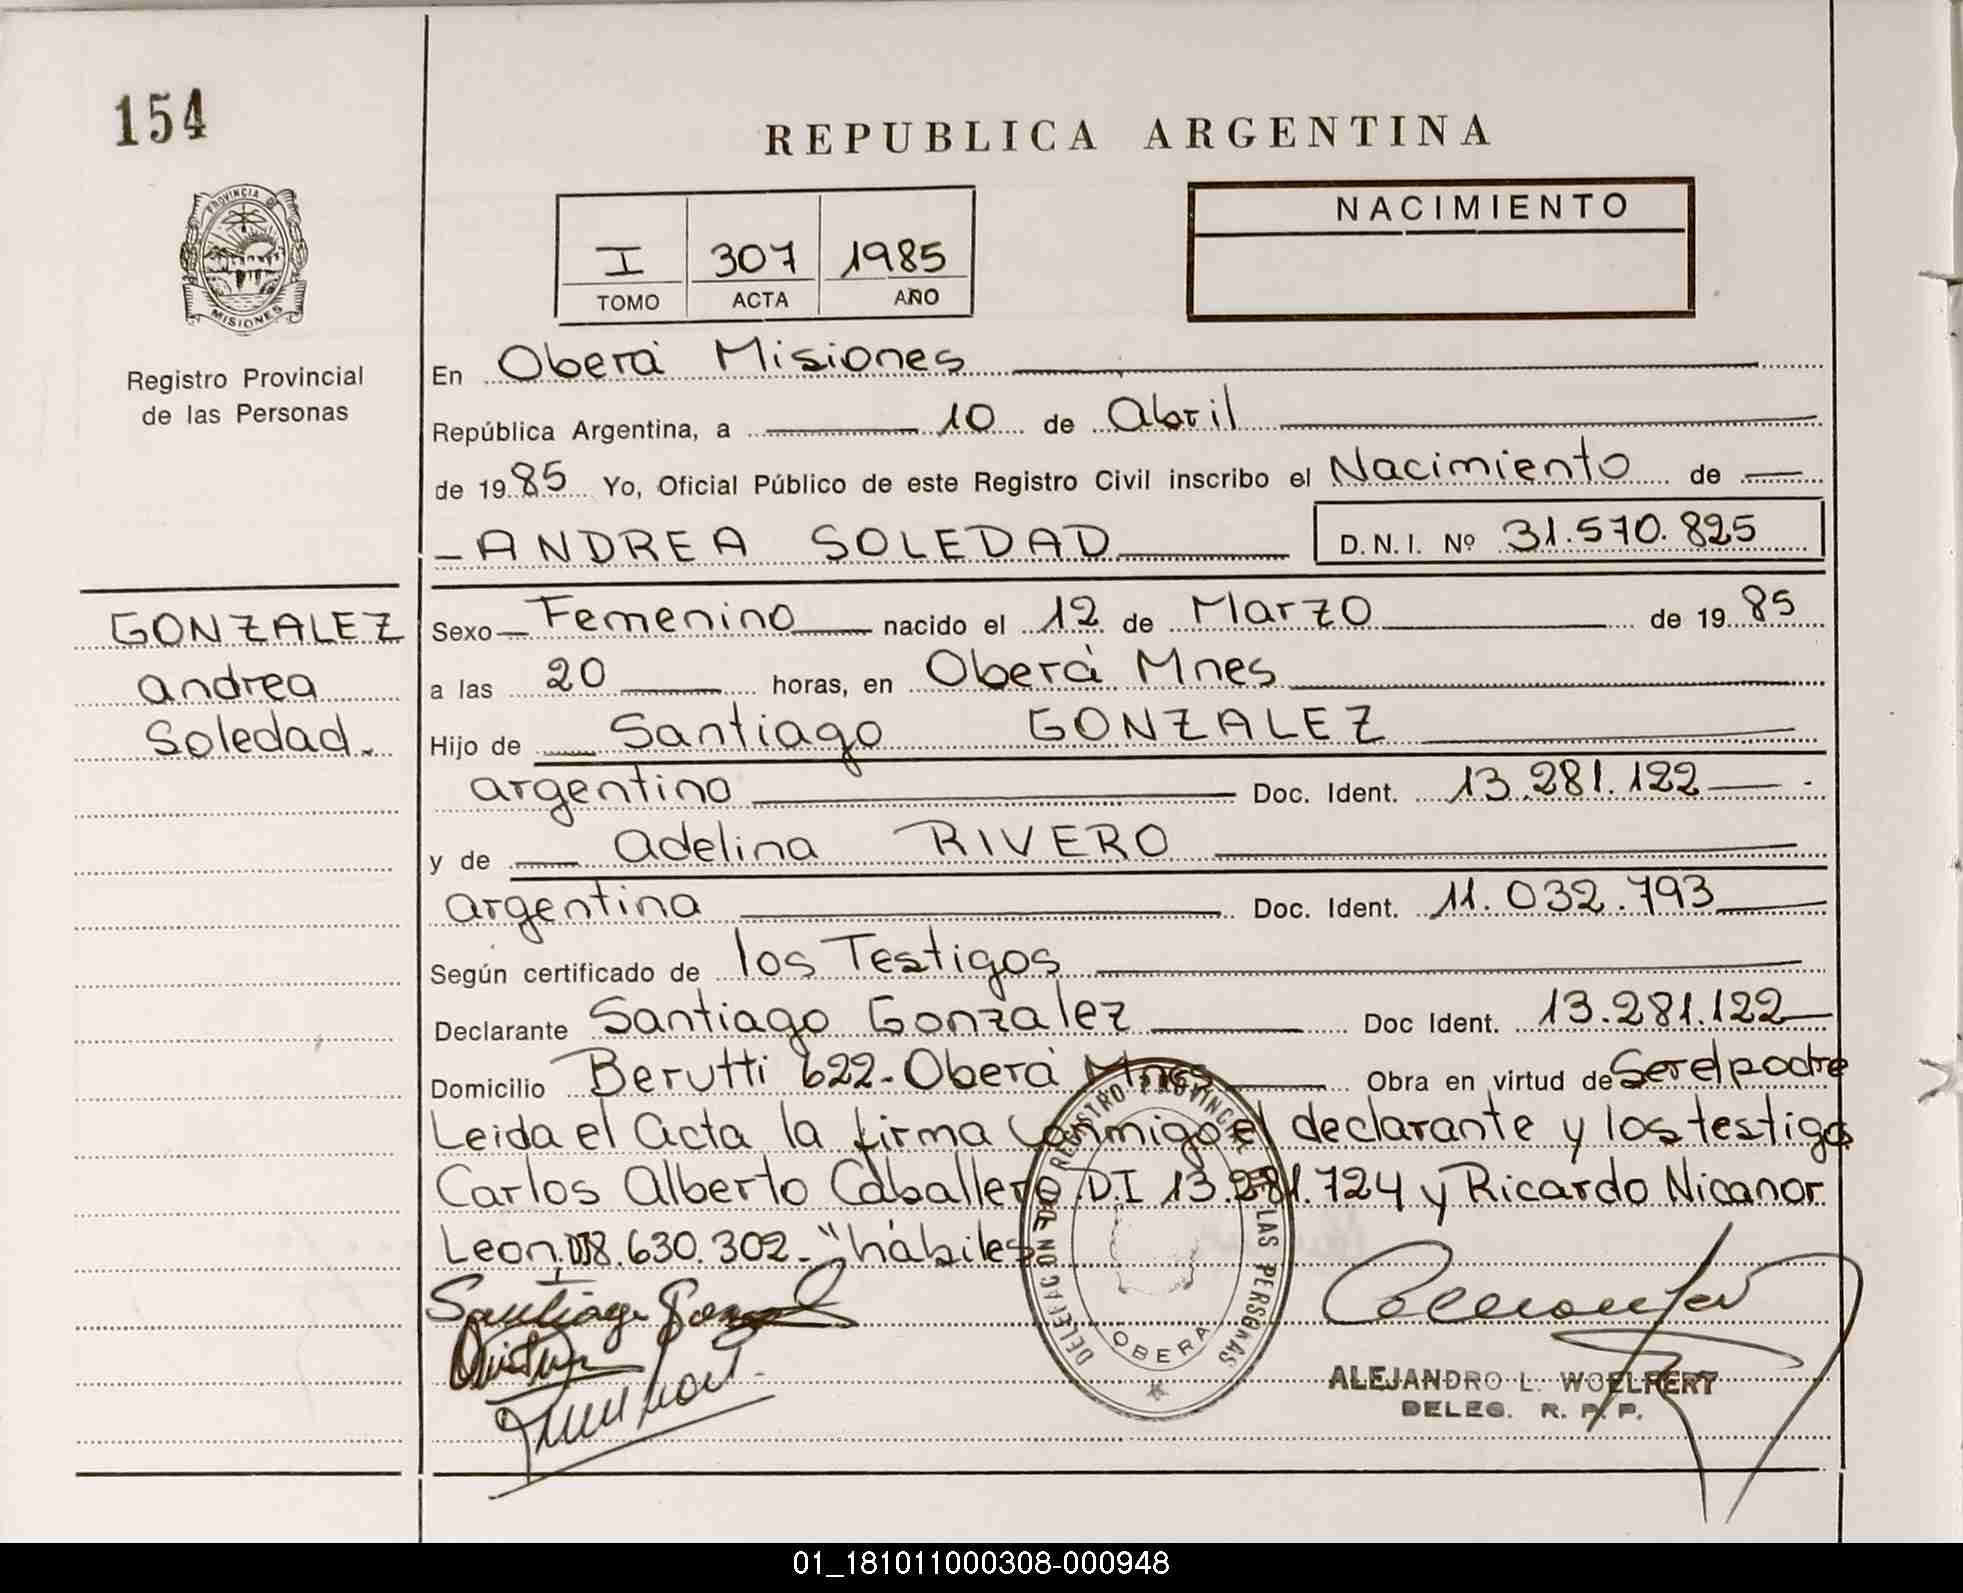 154
REPUBLICA ARGENTINA
PROVINCIA DE
MISIONES
Registro Provincial
de las Personas
I 307 1985
TOMO ACTA AÑO
NACIMIENTO
En Oberá Misiones
República Argentina, a 10 de Abril
de 1985 Yo, Oficial Público de este Registro Civil inscribo el Nacimiento de
ANDREA SOLEDAD D.N.I. Nº 31.570.825
GONZALEZ
Andrea
Soledad.
Sexo Femenino nacido el 12 de Marzo de 1985
a las 20 horas, en Oberá Mnes
Hijo de Santiago GONZALEZ
argentino Doc. Ident. 13.281.122
y de Adelina RIVERO
argentina Doc. Ident. 11.032.793
Según certificado de los Testigos
Declarante Santiago Gonzalez Doc Ident. 13.281.122
Domicilio Berutti 622-Oberá Mnes Obra en virtud de Ser el padre
Leida el Acta la firma Conmigo el declarante y los testigos
Carlos Alberto Caballero D.I 13.281.724 y Ricardo Nicanor
Leon DI 8.630.302-"hábiles
Santiago Gonzalez
DELEGACION DEL REGISTRO PROVINCIAL DE LAS PERSONAS
OBERA
ALEJANDRO L. WOELFERT
DELEG. R. P. P.
01_181011000308-000948